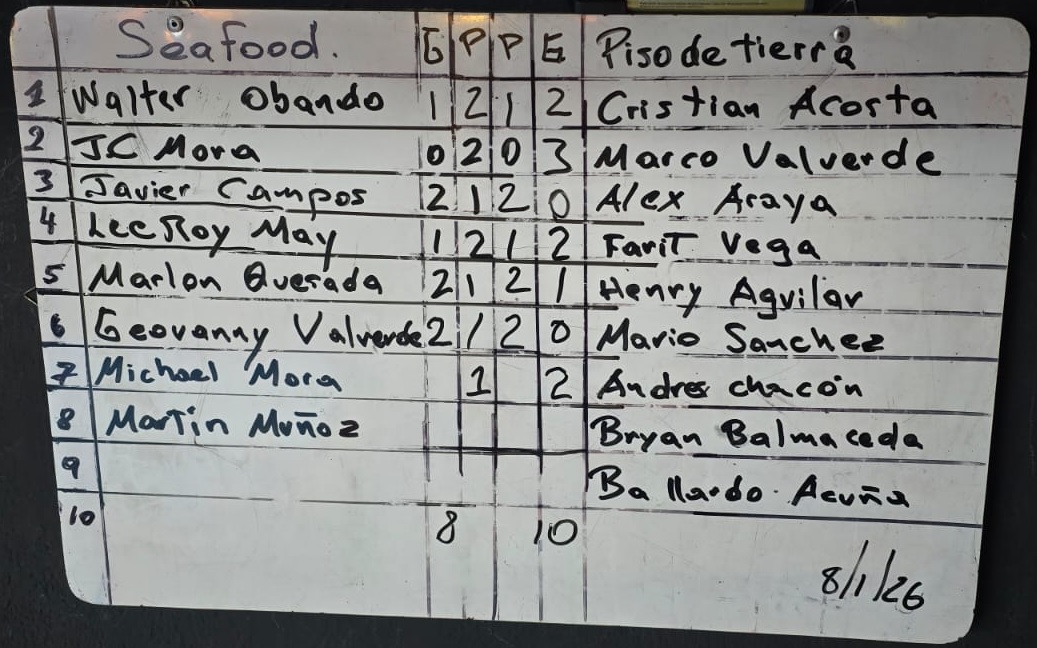 Seafood. G P P G Piso de tierra
1 Walter Obando 1 2 1 2 Cristian Acosta
2 JC Mora 0 2 0 3 Marco Valverde
3 Javier Campos 2 1 2 0 Alex Araya
4 LeeRoy May 1 2 1 2 Farit Vega
5 Marlon Quesada 2 1 2 1 Henry Aguilar
6 Geovanny Valverde 2 1 2 0 Mario Sanchez
7 Michael Mora 1 2 Andres chacón
8 Martín Muñoz Bryan Balmaceda
9 Ballardo Acuña
10 8 10
8/1/26